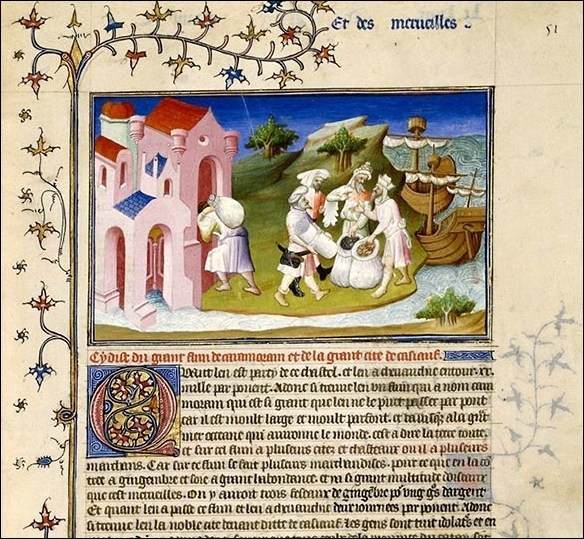 Et des merueilles.
51
Cy dist du grant flun de caramoram et de la grant cite de casiauf.
Quant len est party de ce chastel. et len a cheuauchie entour .xx.
mille par ponent. Adonc si treuue len un flun qui a nom cara
moram qui est si grant que len ne le puet passer par pont
car il est moult large et moult parfont. et va iusques a la grāt
mer occeane qui auironne le monde. cest a dire la terre toute.
et sur cel flun a plusieurs citez et chasteaux ou il a plusieurs
marchans. Car sur ce flun se fait plusieurs marchandises. pour ce que en la cō
tree a gingembre et soie a grant habondance. et y a si grant multitude doiseaux
que cest merueilles. On y auroit trois de gingebre ung gros dargent
Et quant len a passe ce flun et len a cheuauchie deux iournees par ponent. Adonc
si treuue len la noble cite deuant ditte de casiauf. les gens sont tuit et en